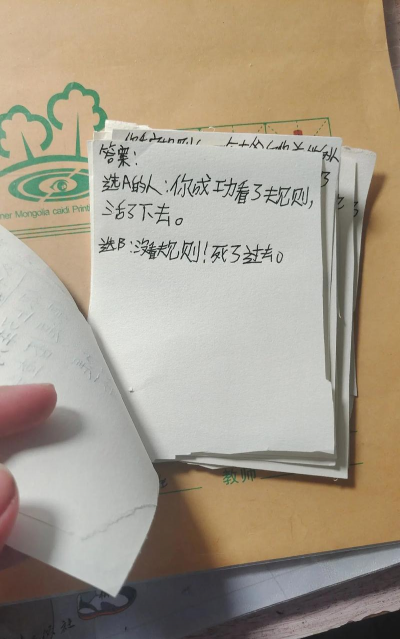 答案:
选A的人:你成功看了规则,
活了下去。
选B:没看规则!死了过去。
ner Mongolia caidi Print
教师